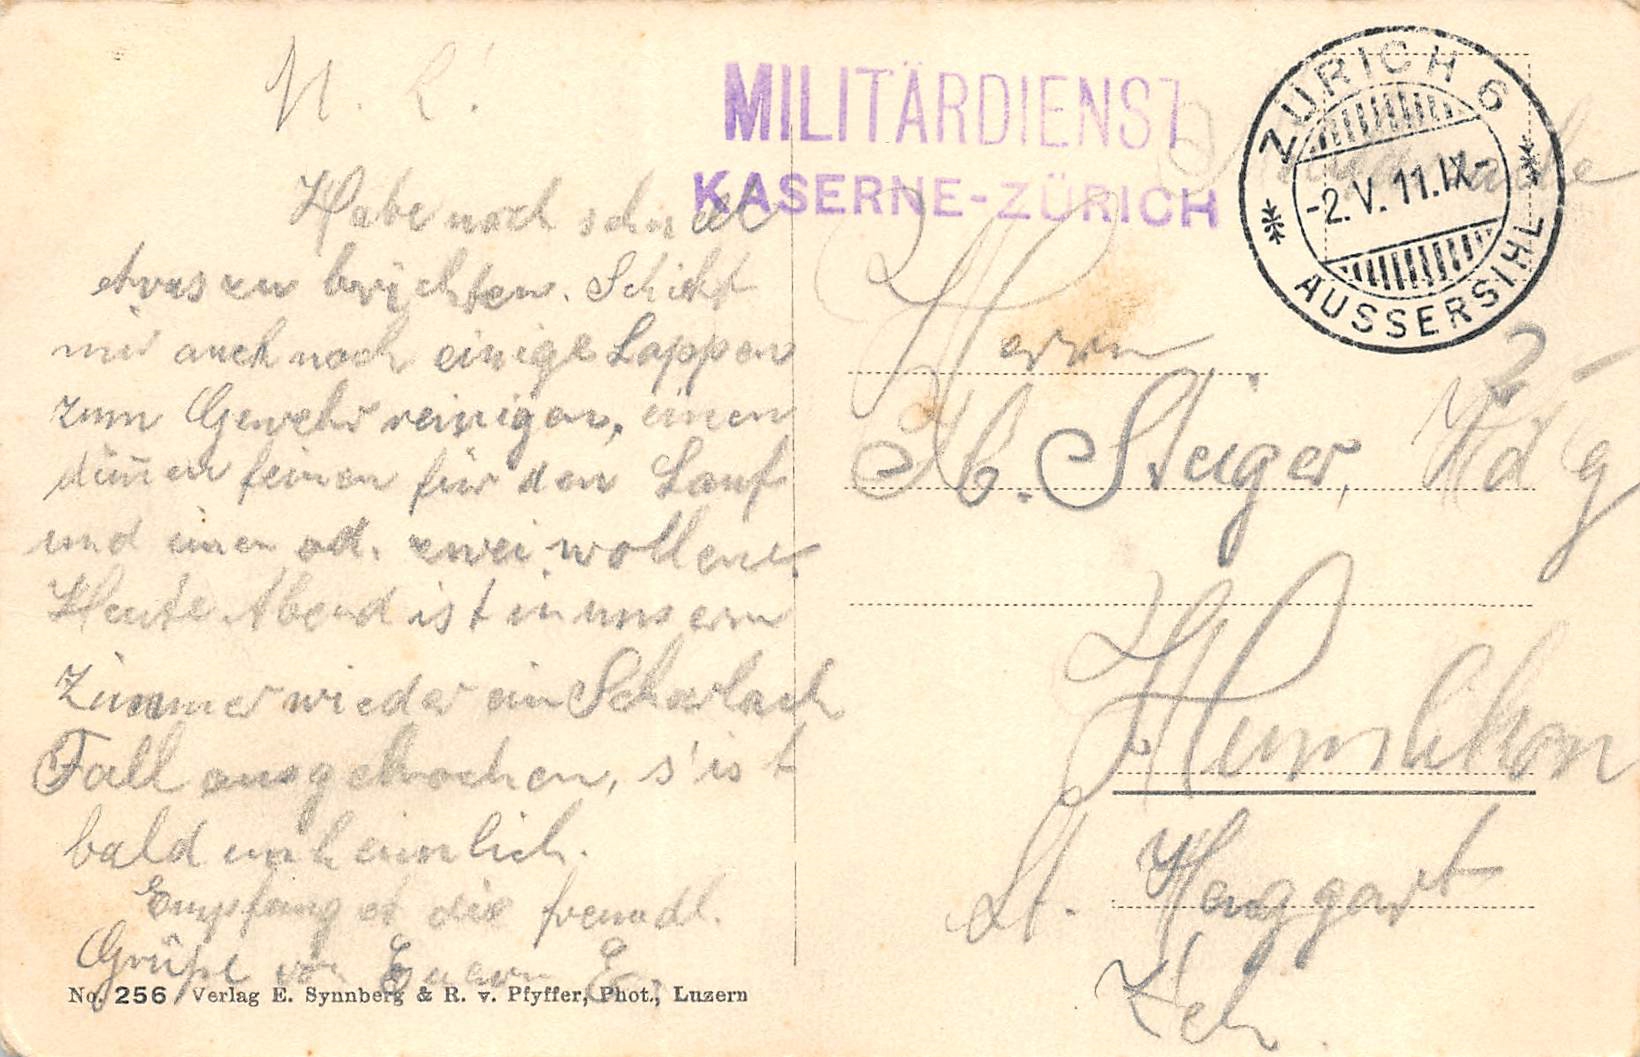 M. L!
MILITÄRDIENST
KASERNE-ZÜRICH
ZÜRICH 6
-2.V.11.IX-
AUSSERSIHL
Habe noch schnell
etwas zu brichten. Schikt
mir auch noch einige Lappen
zum Gewehr reinigen, einen
dün̄en feinen für den Lauf
und einen od. zwei wollene.
Heute Abend ist in unserm
Zimmer wieder ein Scharlach
Fall ausgebrochen, s'ist
bald unheimlich.
Empfanget die freundl.
Grüße von Euerm E.
Herrn
Hb. Steiger,
Humlikon
St. Henggart
Zch.
No. 256 Verlag E. Synnberg & R. v. Pfyffer, Phot., Luzern